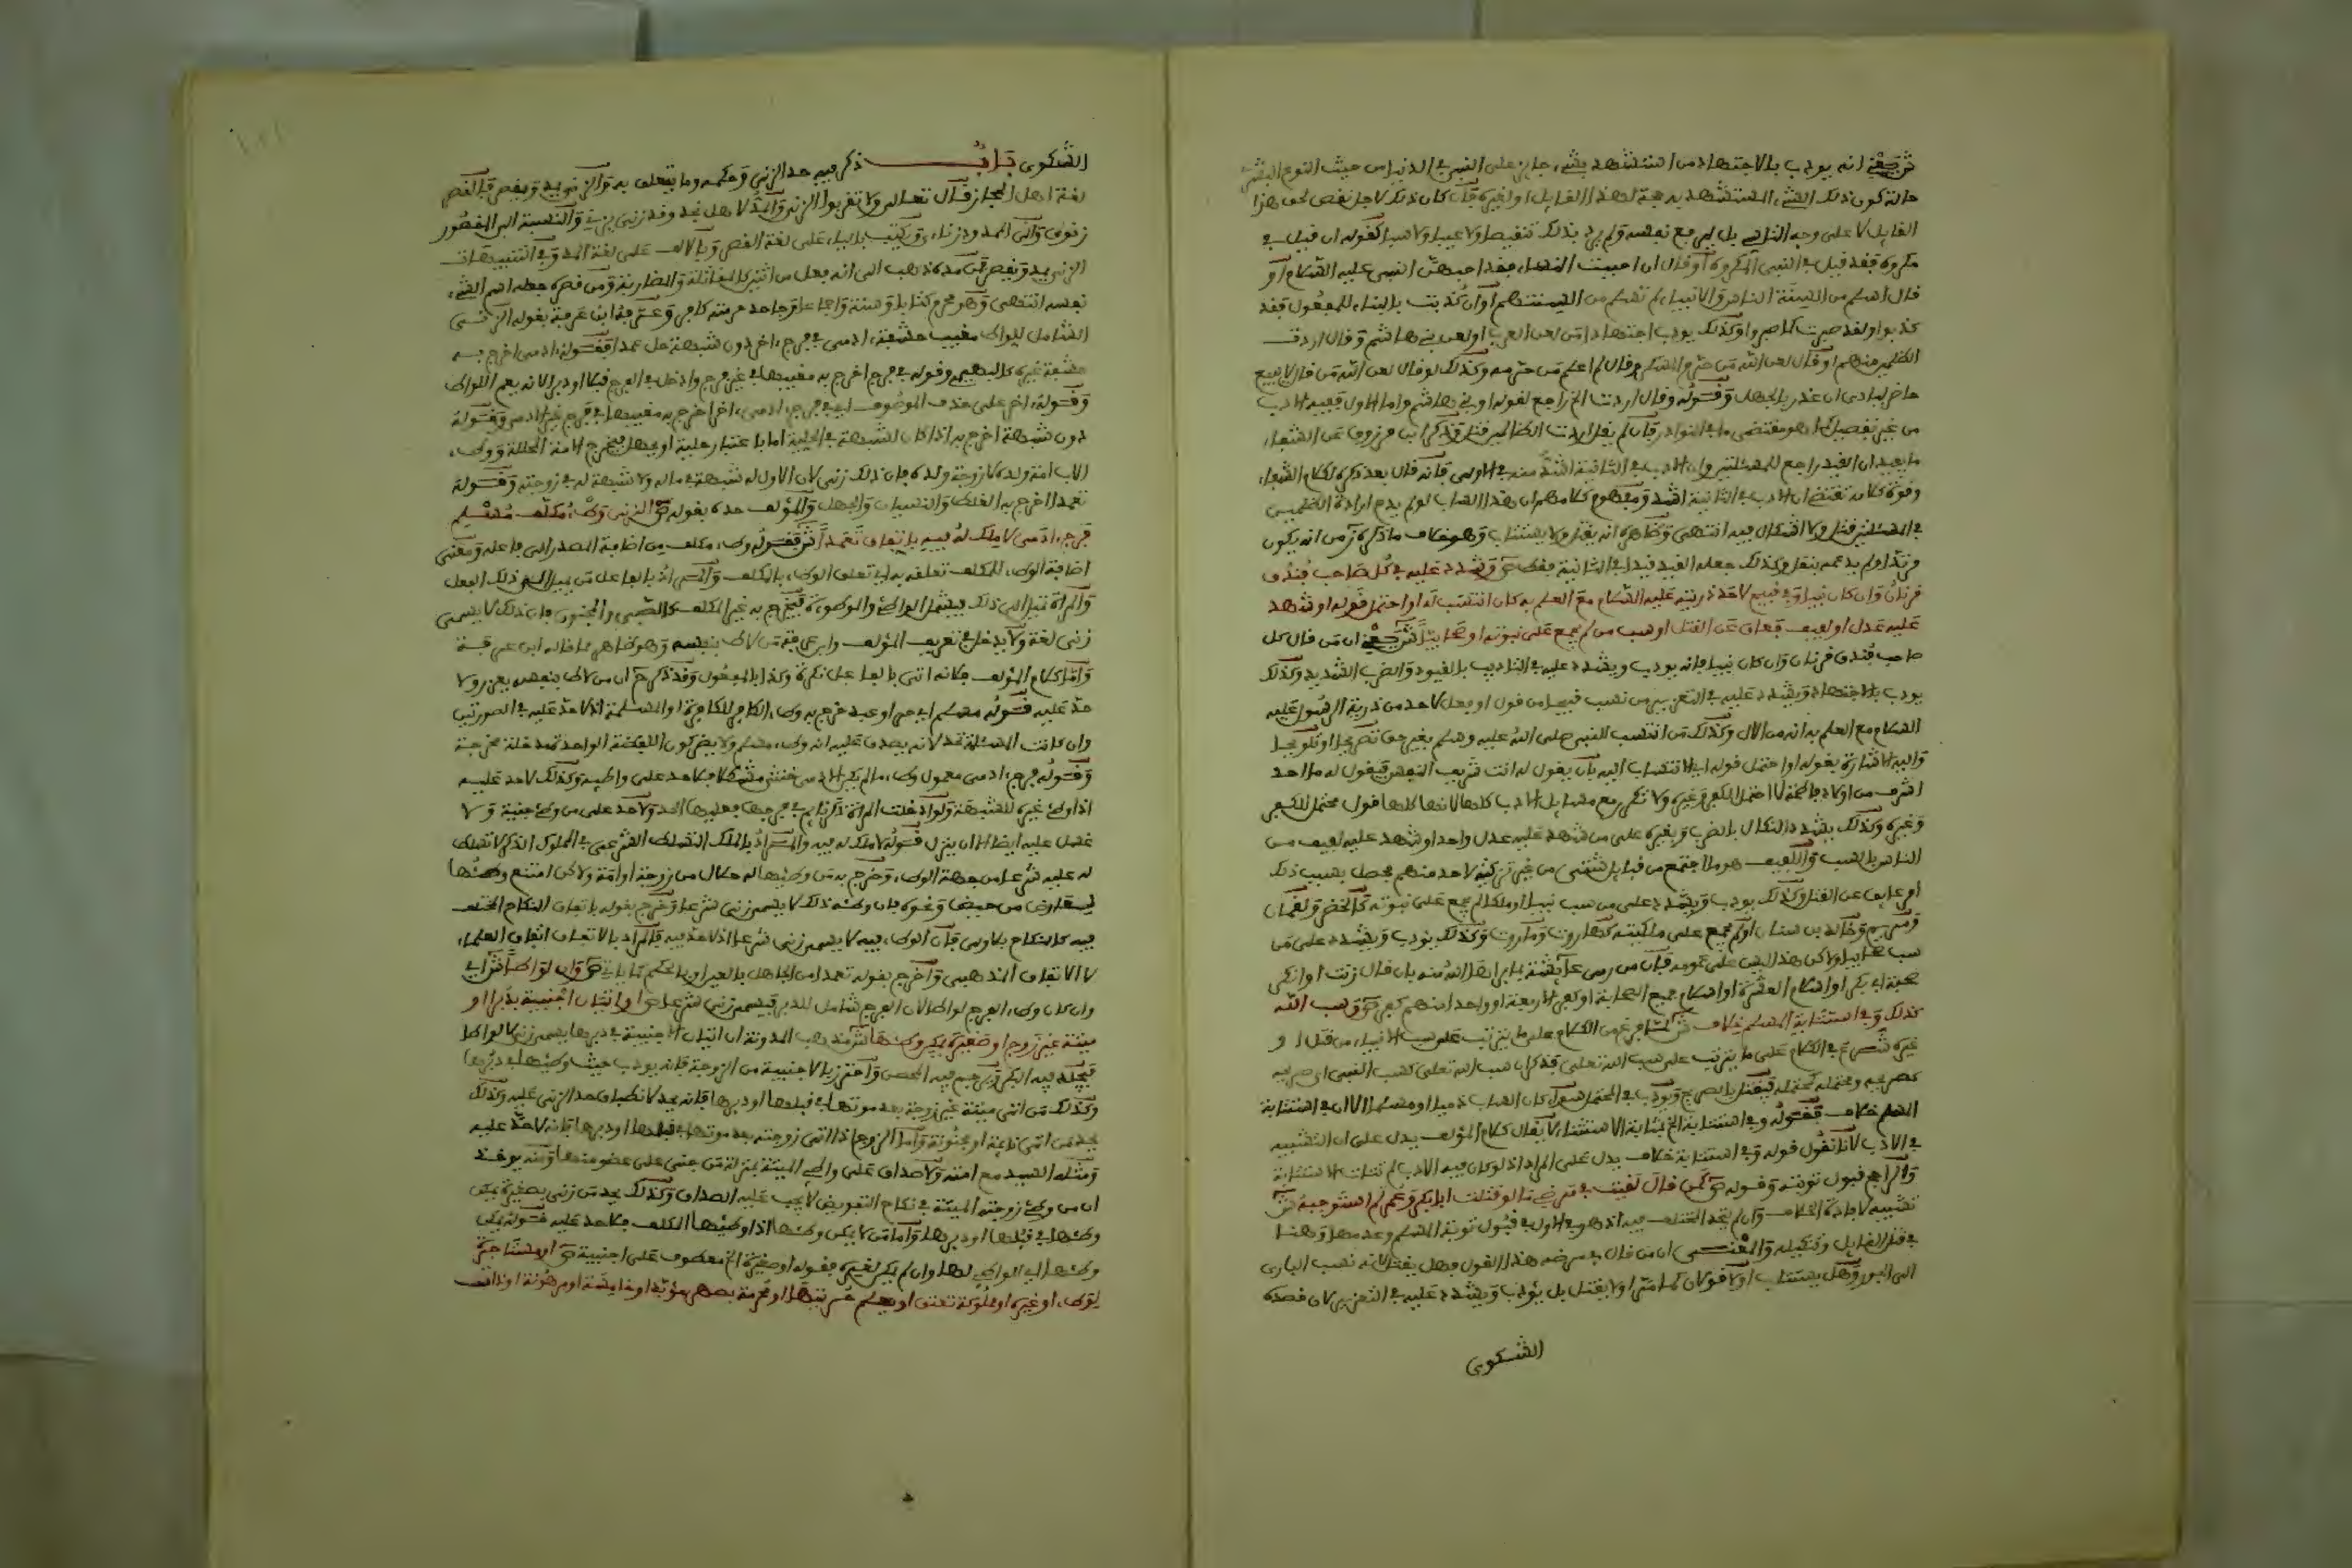 ش يعني انه يودب بالاجتهاد من استشهد بشيء جايز على النبي في الدنيا من حيث النوع البشري
حالة كون ذلك الشيء المستشهد به حجة لهذا القايل او لغيره فان كان ذلك لاجل نقص لحق هذا
القايل لا على وجه التاسي بل ليرفع نفسه ولم يرد بذلك تنقيصا ولا عيبا ولا سبا كقوله ان قيل في
مكروه فقد قيل في النبي المكروه او قال ان احببت النساء فقد احبهن النبي عليه السلام او
قال اسلم من السنة الناس والانبياء لم تسلم من السنتهم او ان كذبت بالبناء للمفعول فقد
كذبوا او لقد صبرت كما صبروا وكذلك يودب اجتهادا من لعن العرب او لعن بني هاشم وقال اردت
الظلمين منهم او قال لعن الله من حرم المسكر وقال لم اعلم من حرمه وكذلك لو قال لعن الله من قال لا يبيع
حاضر لبادي ان عذر بالجهل وقوله وقال اردت الخ راجع لقوله او بني هاشم واما الاول ففيه الادب
من غير تفصيل كما هو مقتضى ما في النوادر فان لم يقل اردت الظالمين قتل وذكر ابن مرزوق عن الشفاء
ما يفيد ان القيد راجع للمسئلتين وان الادب في الثانية اشد منه في الاولى فانه قال بعد ذكره لكلام الشفاء
وقوة كلامه تقتضي ان الادب في الثانية اشد ومفهوم كلامهم ان هذا الساب لو لم يدع ارادة الظلمين
في المسئلتين قتل ولا اشكال فيه انتهى وظاهره انه يقتل ولا يستتاب وهو خلاف ما ذكره تر من انه يكون
مرتدا ولم يدعه بنقل وكذلك جعله القيد قيدا في الثانية فقط ص وشدد عليه في كل صاحب فندق
قرنان وان كان نبيا وفي قبيح لاحد ذريته عليه السلام مع العلم به كان انتسب له او احتمل قوله او شهد
عليه عدل او لفيف فعاق عن القتل او سب من لم يجمع على نبوته او صحابيا ش يعني ان من قال كل
صاحب فندق قرنان وان كان نبيا فانه يودب ويشدد عليه في التاديب بالقيود والضرب الشديد وكذلك
يودب بالاجتهاد ويشدد عليه في التعزير من نسب قبيحا من قول او فعل لاحد من ذرية الرسول عليه
السلام مع العلم به انه من الال وكذلك من انتسب للنبي صلى الله عليه وسلم بغير حق تصريحا او تلويحا
واليه الاشارة بقوله او احتمل قوله اي الانتساب اليه بان يقول له انت شريف النفس فيقول له ما احد
اشرف من اولاد فاطمة لا احتمل الكفر وغيره ولا تكرر مع مسايل الادب كلها لانها كلها قول محتمل للكفر
وغيره وكذلك يشدد النكال بالضرب وغيره على من شهد عليه عدل واحد او شهد عليه لفيف من
الناس بالسب واللفيف هو ما اجتمع من قبايل شتى من غير تزكية لاحد منهم يحصل بسبب ذلك
امر عايق عن القتل وكذلك يودب ويشدد على من سب نبيا او ملكا لم يجمع على نبوته كالخضر ولقمان
ومريم وخالد بن سنان او لم يجمع على ملكيته كهاروت وماروت وكذلك يودب ويشدد على من
سب صحابيا ولاكن هذا ليس على عمومه فان من رمى عائشة بما برأها الله منه بان قال زنت او انكر
صحبة ابي بكر او اسلام العشرة او اسلام جميع الصحابة او كفر الاربعة او واحد منهم كفر ص وسب الله
كذلك وفي استتابة المسلم خلاف ش لما فرغ من الكلام على ما يترتب على سب الانبياء من قتل او
غيره شرع في الكلام على ما يترتب على سب الله تعلى فذكر ان سب الله تعلى كسب النبي اي صريحه
كصريحه ومحتمله كمحتمله فيقتل بالصريح ويودب في المحتمل سواء كان الساب ذميا او مسلما الا ان في استتابة
المسلم خلاف فقوله وفي استتابة الخ بمثابة الاستثناء لا يقال كلام المؤلف يدل على ان التشبيه
في الادب لانا نقول قوله وفي استتابة خلاف يدل على المراد اذ لو كان فيه الادب لم تتات الاستتابة
والراجح قبول توبته وقوله ص كمن قال لقيت في مرضي ما لو قتلت ابا بكر وعمر لم استوجبه ش
تشبيه لافادة الخلاف وان لم يتحد المختلف فيه اذ هو في الاول في قبول توبة المسلم وعدمها وهنا
في قتل القايل وتنكيله والمعنى ان من قال في مرضه هذا القول فهل يقتل لانه نسب الباري
الى الجور وهل يستتاب او لا قولان كما مر او لا يقتل بل يؤدب ويشدد عليه في التعزير لان قصده
الشكوى
الشكوى باب ذكر فيه حد الزنى وحكمه وما يتعلق به والزنى يمد ويقصر فالقصر
لغة اهل الحجاز قال تعالى ولا تقربوا الزنى والمد لاهل نجد وقد زنى يزني والنسبة الى المقصور
زنوي والى الممدود زناءي وكتب بالياء على لغة القصر وبالالف على لغة المد وفي التنبيهات
الزنى يمد ويقصر فمن مده ذهب الى انه فعل من اثنين كالمقاتلة والمضاربة ومن قصره جعله اسم الشيء
نفسه انتهى وهو محرم كتابا وسنة واجماعا وجاحد حرمته كافر وعرفه ابن عرفة بقوله الزنى
الشامل للواط مغيب حشفة ادمي في فرج اخر دون شبهة حل عمدا فقوله ادمي اخرج به
حشفة غيره كالبهيمي وقوله في فرج اخرج به مغيبها في غير فرج وادخل في الفرج قبلا او دبرا لانه يعم اللواط
وقوله اخر على حذف الموصوف اي في فرج ادمي اخر اخرج به مغيبها في فرج غير ادمي وقوله
دون شبهة اخرج به اذا كان الشبهة في الحلية اما باعتبار حلية او جهل فيخرج الامة المحللة ووطء
الاب امة ولده لا زوجة ولده فان ذلك زنى لان الاول له شبهة في ماله ولا شبهة له في زوجته وقوله
تعمدا اخرج به الغلط والنسيان والجهل والمؤلف حده بقوله ص الزنى وطء مكلف مسلم
فرج ادمي لا ملك له فيه باتفاق تعمدا ش فقوله وطء مكلف من اضافة المصدر الى فاعله ومعنى
اضافة الوطء للمكلف تعلقه به اي تعلق الوطء بالمكلف والمراد بالفاعل من ينسب اليه ذلك الفعل
والمراة تنسب الى ذلك فيشمل الواطئ والموطوءة فيخرج به غير المكلف كالصبي والمجنون فان ذلك لا يسمى
زنى لغة ولا يدخل في تعريف المؤلف وابن عرفة من لاط بنفسه وهو ظاهر مما قاله ابن عرفة
واما كلام المؤلف فلانه اتى بالفاعل نكرة وكذا بالمفعول وقد ذكر ح ان من لاط بنفسه يعزر ولا
حد عليه قوله مسلم اي حر او عبد خرج به وطء الكافر للكافرة او المسلمة اذ لا حد عليه في الصورتين
وان كانت المسئلة تحد لانه يصدق عليه انه وطء مسلم ولا يضر كون اللفظة الواحدة مدخلة مخرجة
وقوله فرج ادمي معمول وطء ما لم يكن الادمي خنثى مشكلا فلا حد على واطيه وكذلك لا حد عليه
اذا وطئ غيره للشبهة ولو ادخلت المراة ذكر نايم في فرجها فعليها الحد ولا حد على من وطئ جنية ولا
غسل عليه ايضا الا ان ينزل قوله لا ملك له فيه والمراد بالملك التسلط الشرعي في المملوك الذكر لا تسلط
له عليه شرعا من جهة الوطء وخرج به من وطئها له حلال من زوجة او امة ولاكن امتنع وطئها
لعارض من حيض ونحوه فان وطئه ذلك لا يسمى زنى شرعا وخرج بقوله باتفاق النكاح المختلف
فيه كالنكاح بلا ولي فان الوطء فيه لا يسمى زنى شرعا اذ لا حد فيه فالمراد بالاتفاق اتفاق العلماء
لا الاتفاق المذهبي واخرج بقوله تعمدا من الجاهل بالعين او بالحكم كما ياتي ص وان لواطا ش اي
وان كان وطء الفرج لواطا لان الفرج شامل للدبر فيسمى زنى شرعا ص او اتيان اجنبية بدبر او
ميتة غير زوج او صغيرة يمكن وطئها ش مذهب المدونة ان اتيان الاجنبية في دبرها يسمى زنى لا لواطا
فيجلد فيه البكر ويرجم فيه المحصن واحترز بالاجنبية من الزوجة فانه يودب حيث وطئها في دبرها
وكذلك من اتى ميتة غير زوجته بعد موتها في قبلها او دبرها فانه يحد لانطباق حد الزنى عليه وكذلك
يحد من اتى نايمة او مجنونة واما الزوج اذا اتى زوجته بعد موتها في قبلها او دبرها فانه لا حد عليه
ومثله السيد مع امته ولا صداق على واطئ الميتة بمنزلة من جنى على عضو منها ومنه يوخذ
ان من وطئ زوجته الميتة في نكاح التفويض لا يجب عليه الصداق وكذلك يحد من زنى بصغيرة يمكن
وطئها في قبلها او دبرها واما من لا يمكن وطئها اذا وطئها المكلف فلا حد عليه قوله يمكن
وطئها اي الواطئ لها وان لم يكن لغيره فقوله او صغيرة الخ معطوف على اجنبية ص او مستاجرة
لوطء او غيره او مملوكة تعتق او يعلم حريتها او محرمة بصهر مؤبد او خامسة او مرهونة او ذات